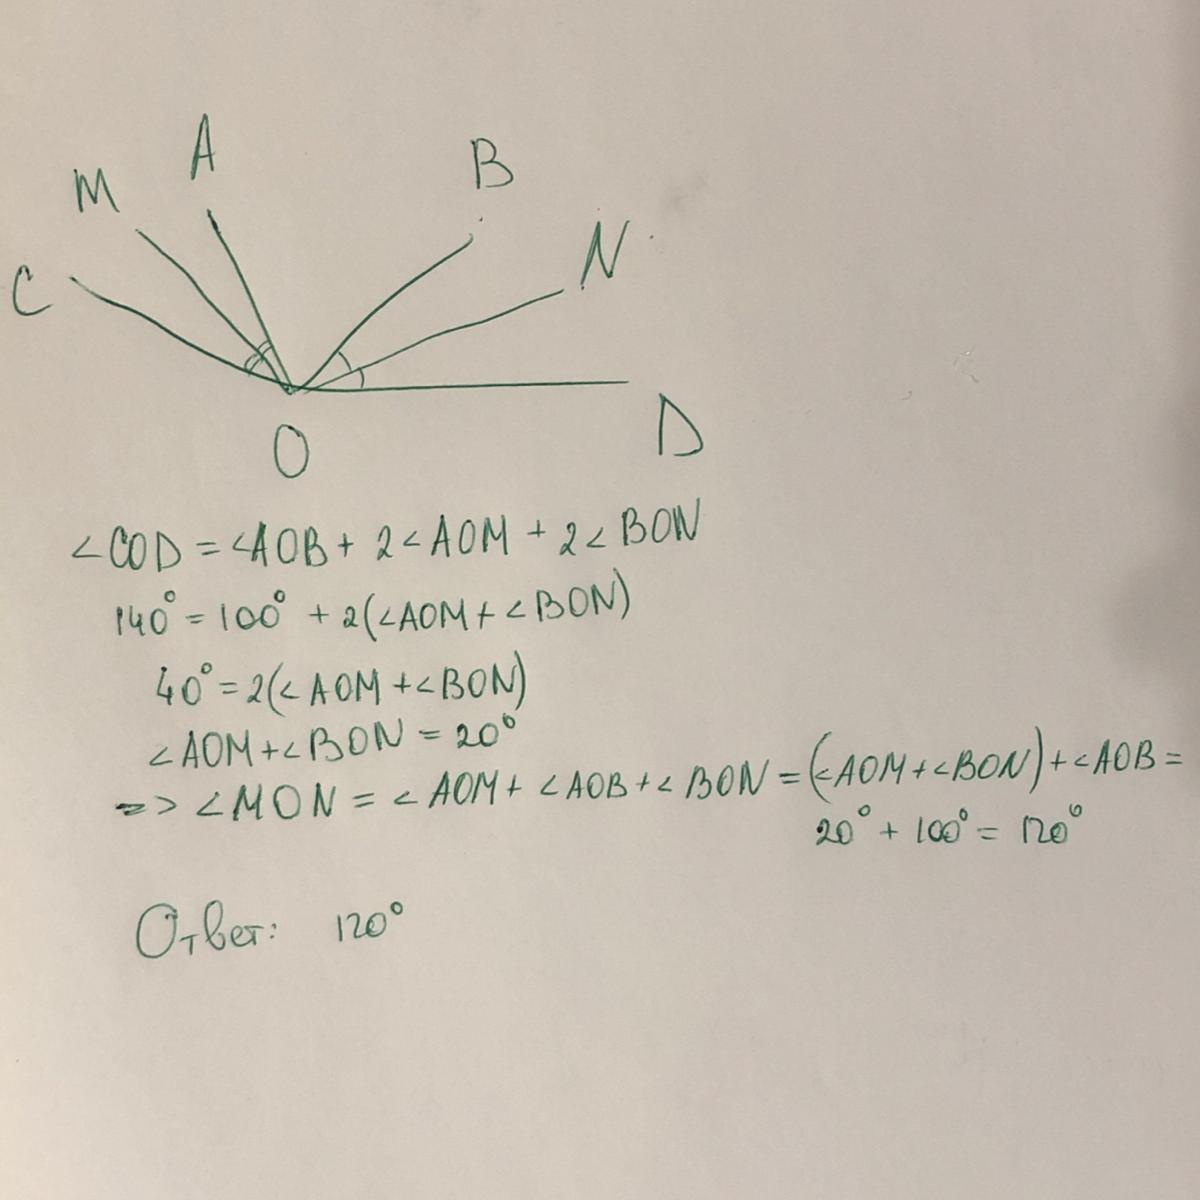 A
B
M
N
C
O
D
∠COD = ∠AOB + 2∠AOM + 2∠BON
140° = 100° + 2(∠AOM + ∠BON)
40° = 2(∠AOM + ∠BON)
∠AOM + ∠BON = 20°
=> ∠MON = ∠AOM + ∠AOB + ∠BON = (∠AOM + ∠BON) + ∠AOB =
20° + 100° = 120°
Ответ: 120°